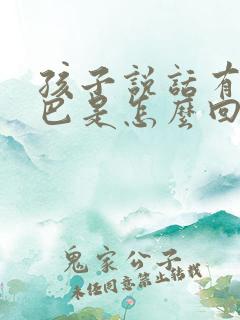 孩子說話有
巴是怎麼回
鬼家公子
未经同意禁止转载